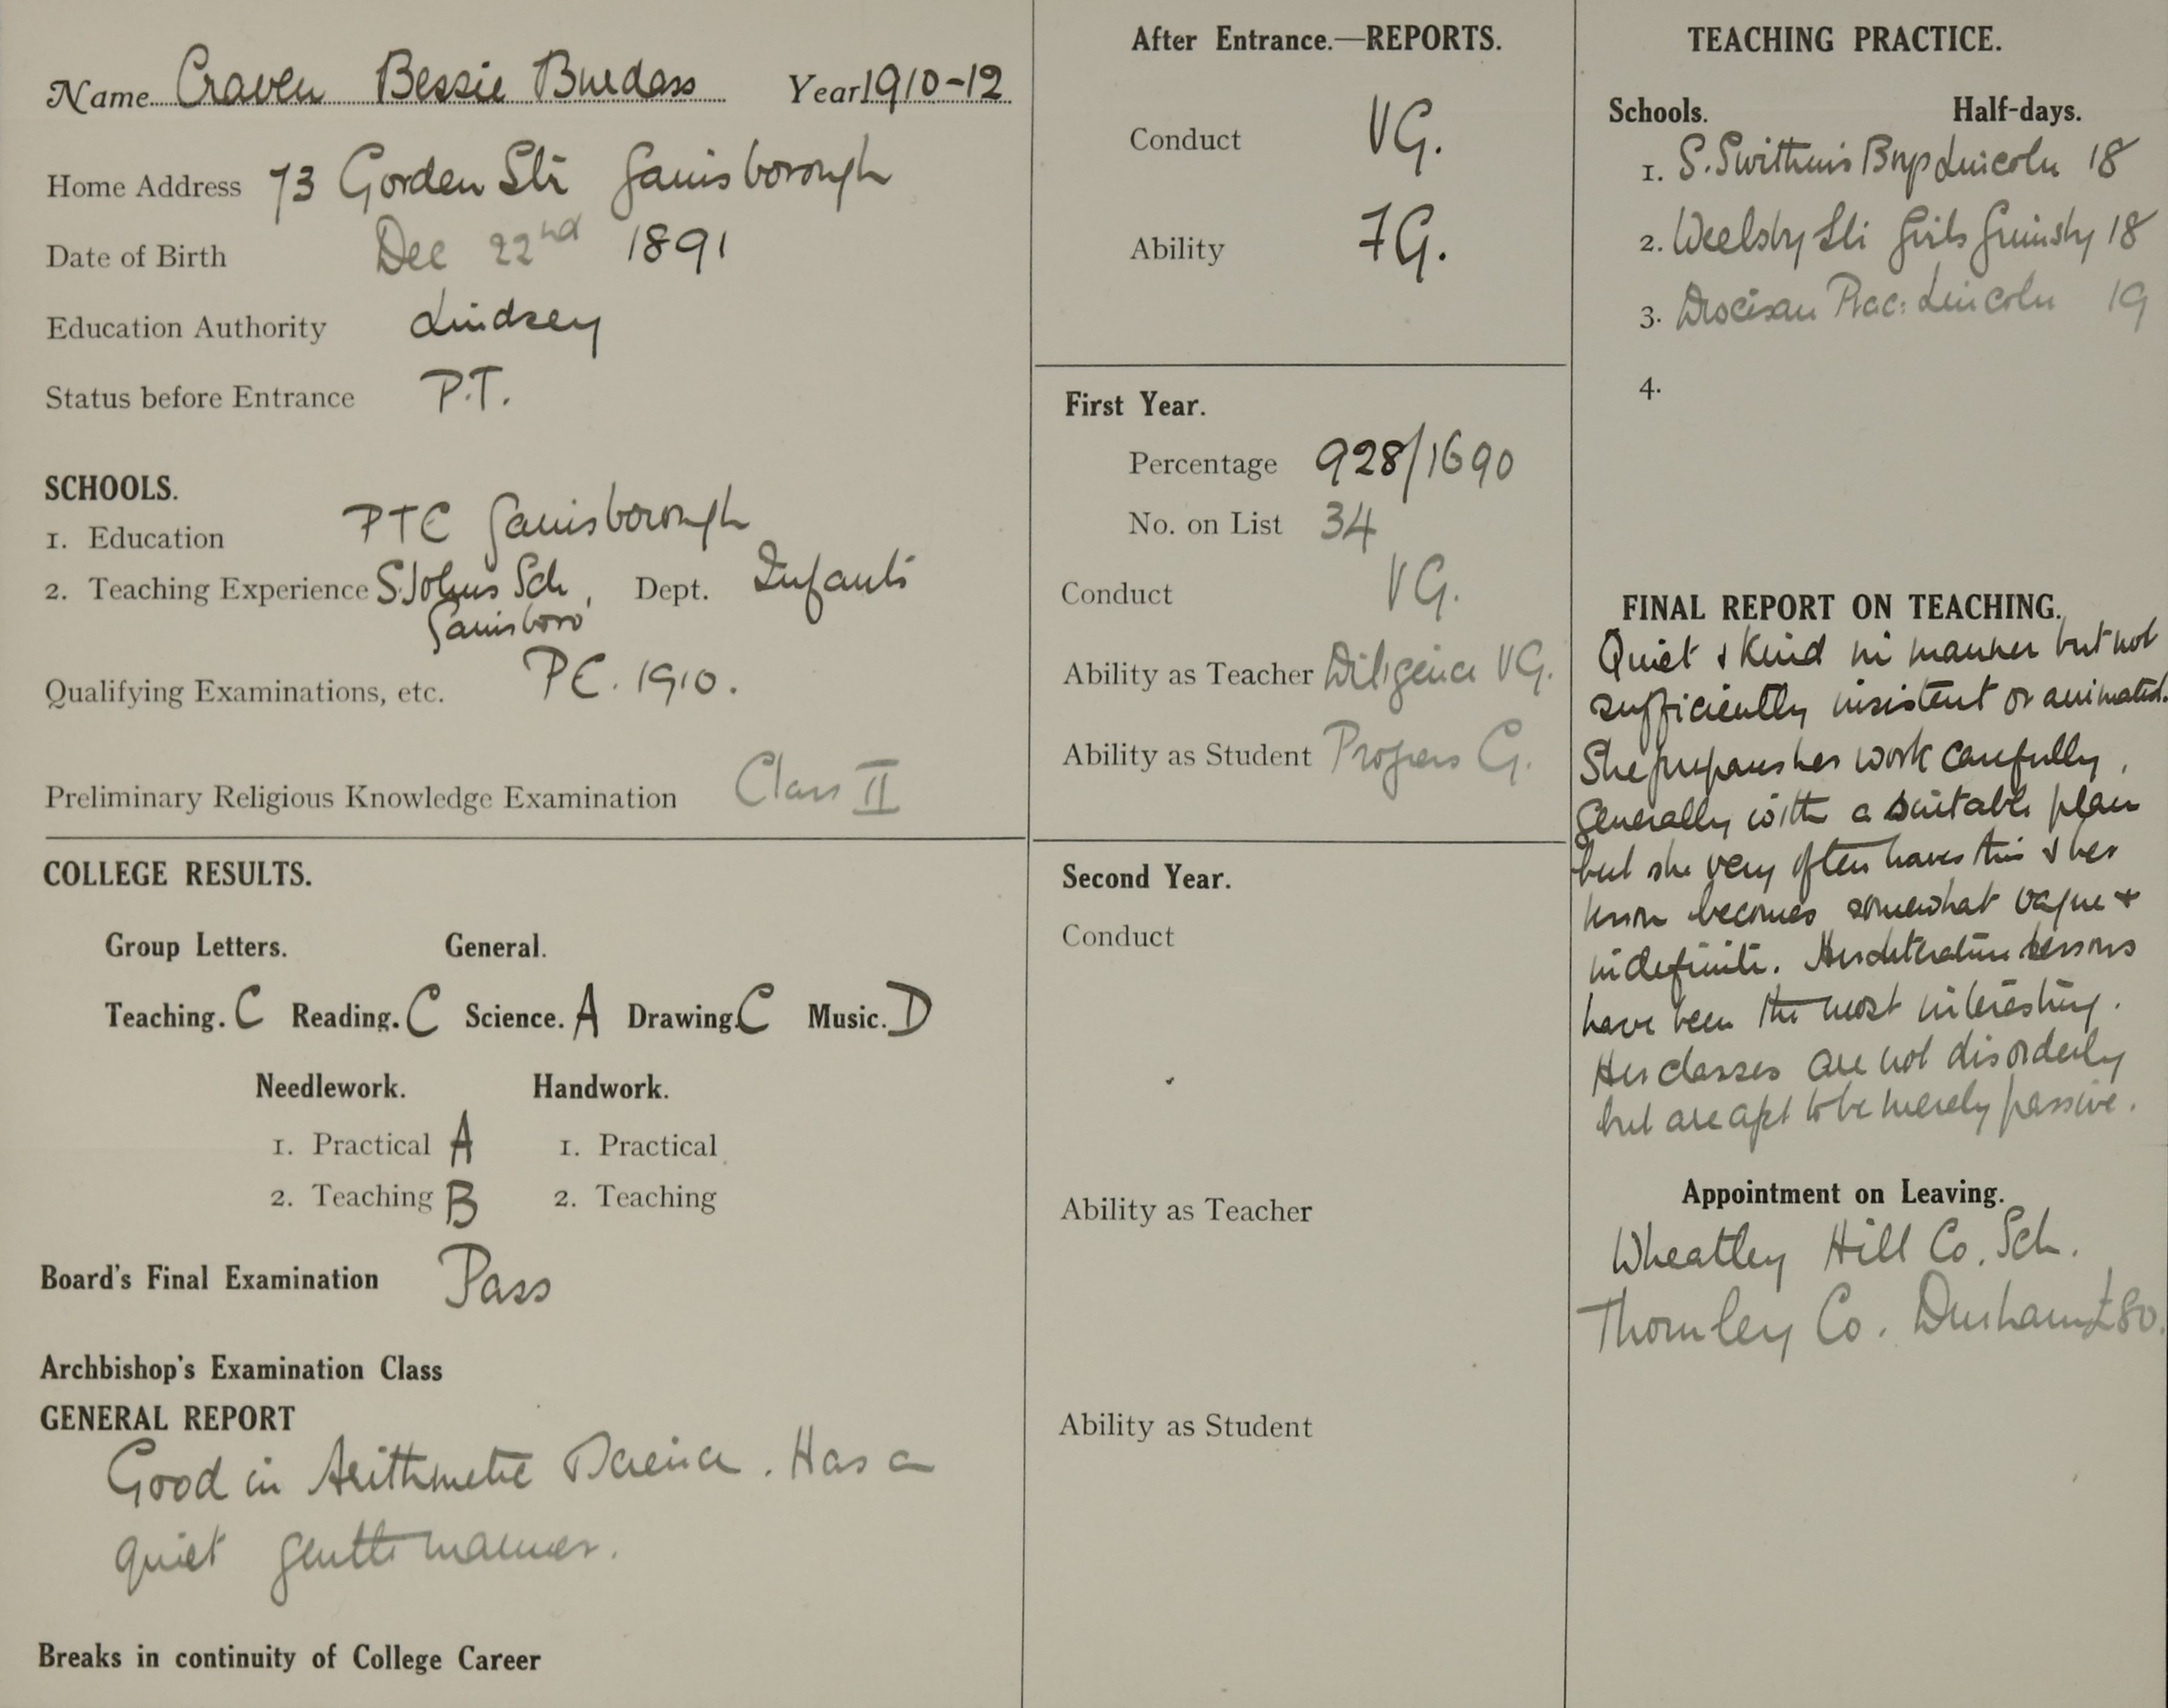 Name Craven Bessie Burdass Year 1910-12
Home Address 73 Gorden Str Gainsborough
Date of Birth Dec 22nd 1891
Education Authority Lindsey
Status before Entrance P.T.
SCHOOLS.
1. Education PTC Gainsborough
2. Teaching Experience S. Johns Sch, Dept. Infants
Gainsboro'
Qualifying Examinations, etc. PC. 1910.
Preliminary Religious Knowledge Examination Class II
COLLEGE RESULTS.
Group Letters. General.
Teaching. C Reading. C Science. A Drawing. C Music. D
Needlework. Handwork.
1. Practical A 1. Practical
2. Teaching B 2. Teaching
Board's Final Examination Pass
Archbishop's Examination Class
GENERAL REPORT
Good in Arithmetic Science. Has a
quiet gentle manner.
Breaks in continuity of College Career
After Entrance.—REPORTS.
Conduct VG.
Ability FG.
First Year.
Percentage 928/1690
No. on List 34
Conduct VG.
Ability as Teacher Diligence VG.
Ability as Student Progress G.
Second Year.
Conduct
Ability as Teacher
Ability as Student
TEACHING PRACTICE.
Schools. Half-days.
1. S. Swithins Boys Lincoln 18
2. Weelsby Str Girls Grimsby 18
3. Diocesan Prac: Lincoln 19
4.
FINAL REPORT ON TEACHING.
Quiet & kind in manner but not
sufficiently insistent or animated.
She prepares her work carefully,
generally with a suitable plan
but she very often leaves this & her
lesson becomes somewhat vague &
indefinite. Her Literature lessons
have been the most interesting.
Her classes are not disorderly
but are apt to be merely passive.
Appointment on Leaving.
Wheatley Hill Co. Sch.
Thornley Co. Durham £80.